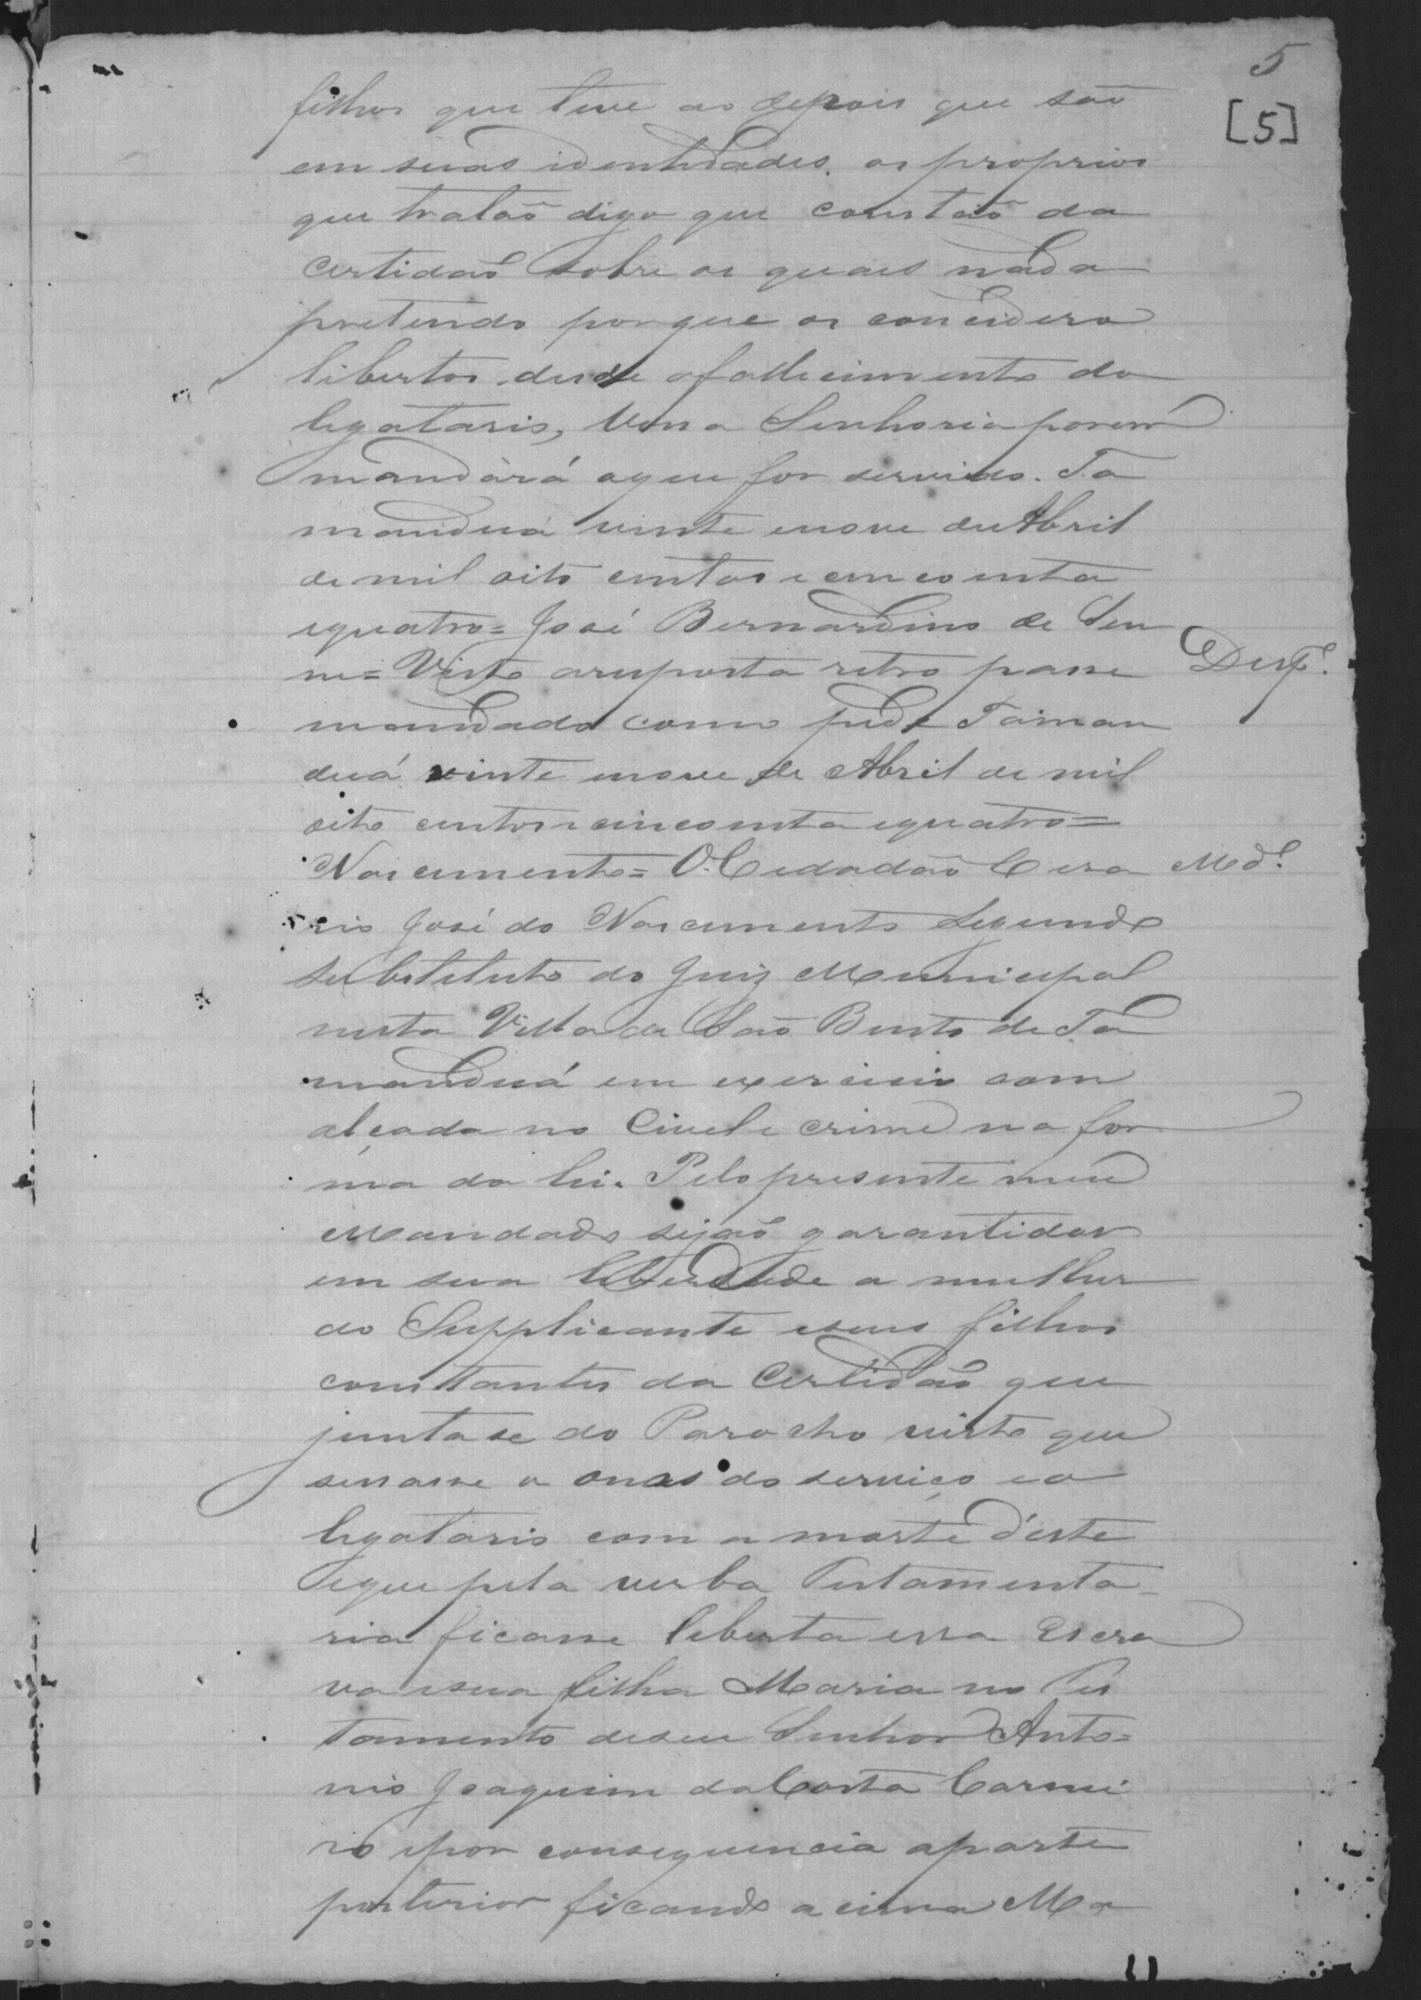 5
[5]
filhos que teve ao depois que são
em suas identidades os proprios
que tratão digo que constão da
certidão sobre os quaes nada
pretendo porque os concidero
libertos desde o fallecimento do
legatario, Vossa Senhoria porem
mandará o que for servido. Ta
manduá vinte e nove de Abril
de mil oito centos e cincoenta
e quatro = José Bernardino de Sen
ne = Visto a resposta retro passe Desp.º
mandado como pede Taman
duá vinte e nove de Abril de mil
oito centos e cincoenta e quatro =
Nascimento = O Cidadão Cesa Md.º
rio José do Nascimento Segundo
substituto do Juiz Municipal
nesta Villa de São Bento de Ta
manduá em exercicio com
alçada no Civel e crime na for
ma da lei. Pelo presente meu
Mandado sejão garantidos
em sua liberdade a mulher
do Supplicante e seus filhos
constantes da Certidão que
junta se do Parocho visto que
sessasse o onus do serviço ao
legatario com a morte d'este
e que pela verba Testamenta
ria ficasse liberta essa Escra
va e sua filha Maria no Tes
tamento de seu Senhor Anto=
nio Joaquim da Costa Carnei
ro e por consequencia a parte
posterior ficando a cima Ma